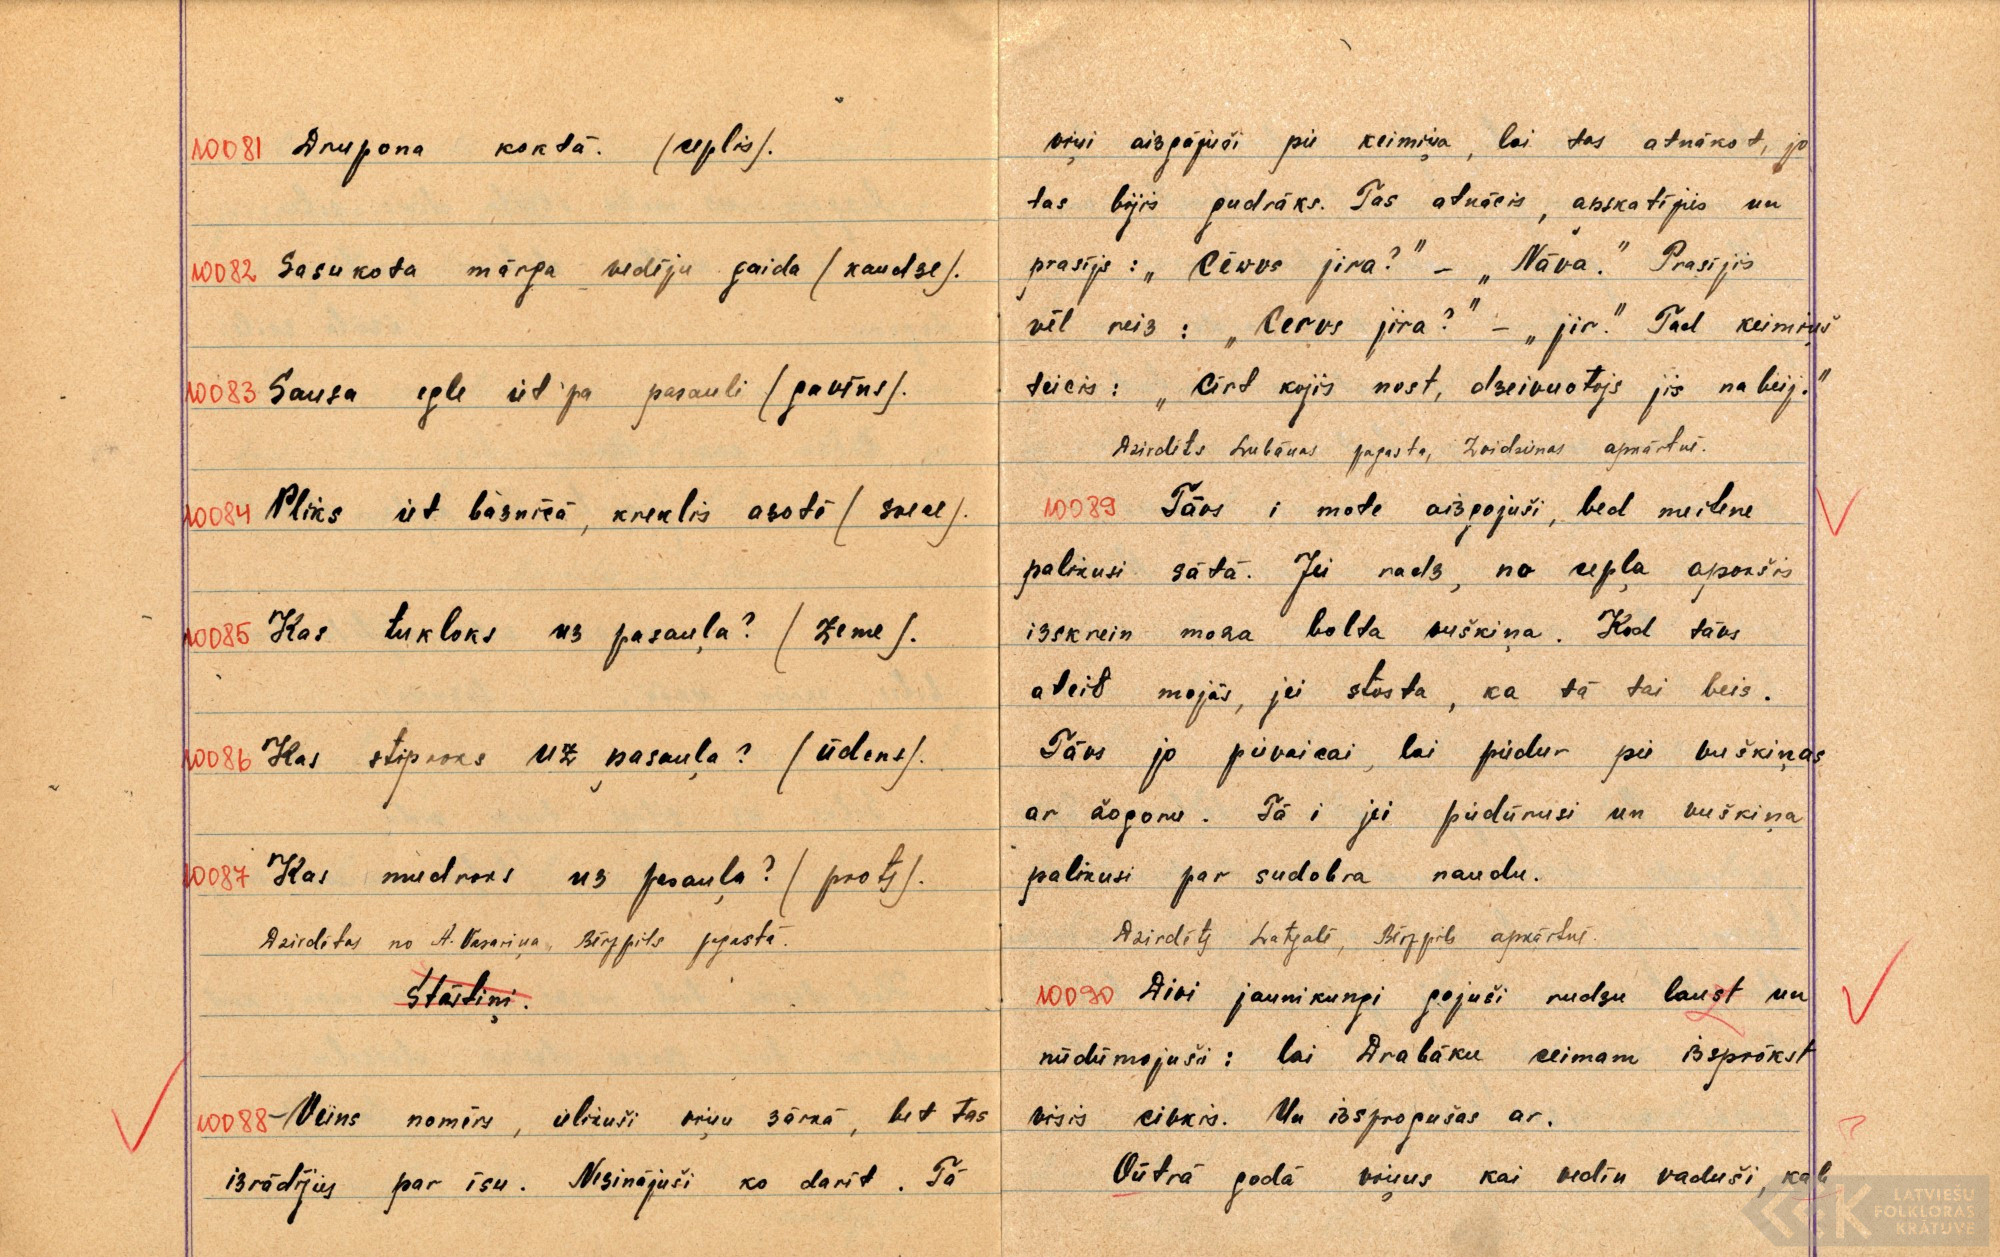 10081 Drupona koktā. (ceplis).
10082 Sasukota mārga vedēju gaida (kaudze).
10083 Sausa egle ūt pa pasauli (gavēns).
10084 Pliks ūt bāsnīcā, kreklis azotē (svece).
10085 Kas tukloks uz pasauļa? (Zeme).
10086 Kas stiproks uz pasauļa? (ūdens).
10087 Kas mudroks uz pasauļa? (prots).
Dzirdētas no A. Vasariņa, Bērzpils pagastā.
Stāstiņi.
10088 – Veins nomērs, ūlikuši viņu zārkā, bet tas
izrādījies par īsu. Nezinājuši ko darīt. Tā
viņi aizgājuši pie keimiņa, lai tas atnākot, jo
tas bijis gudrāks. Tas atnācis, apskatījis un
prasījs: „Cērvs jira?" – „Nāva." Prasījis
vēl reiz: „Cervs jira?" – „jir." Tad keimiņš
teicis: „Cirt kojis nost, dzeivuotojs jis nabeij."
Dzirdēts Lubānas pagasta, Zvidzienas apkārtnē.
10089 Tāvs i mote aizgojuši, bed meitene
palikusi sātā. Jei radz, no cepļa apokšis
izskrein moza bolta vuškiņa. Kod tāvs
ateit mojās, jei stosta, ka tā tai beis.
Tāvs jo pūvaicai, lai pīdur pie vuškiņas
ar žogoru. Tā i jei pīdūrusi un vuškiņa
palikusi par sudobra naudu.
Dzirdēts Latgalē, Bērzpils apkārtnē.
10090 Divi jaunikungi gojuši rudzu laust un
nūdūmojuši: lai Drabāku ceimam izsprōkst
visis civkis. Un izsprogušas ar.
Ōūtrā godā viņus kai vedin vaduši, kab
LATVIEŠU
FOLKLORAS
KRĀTUVE